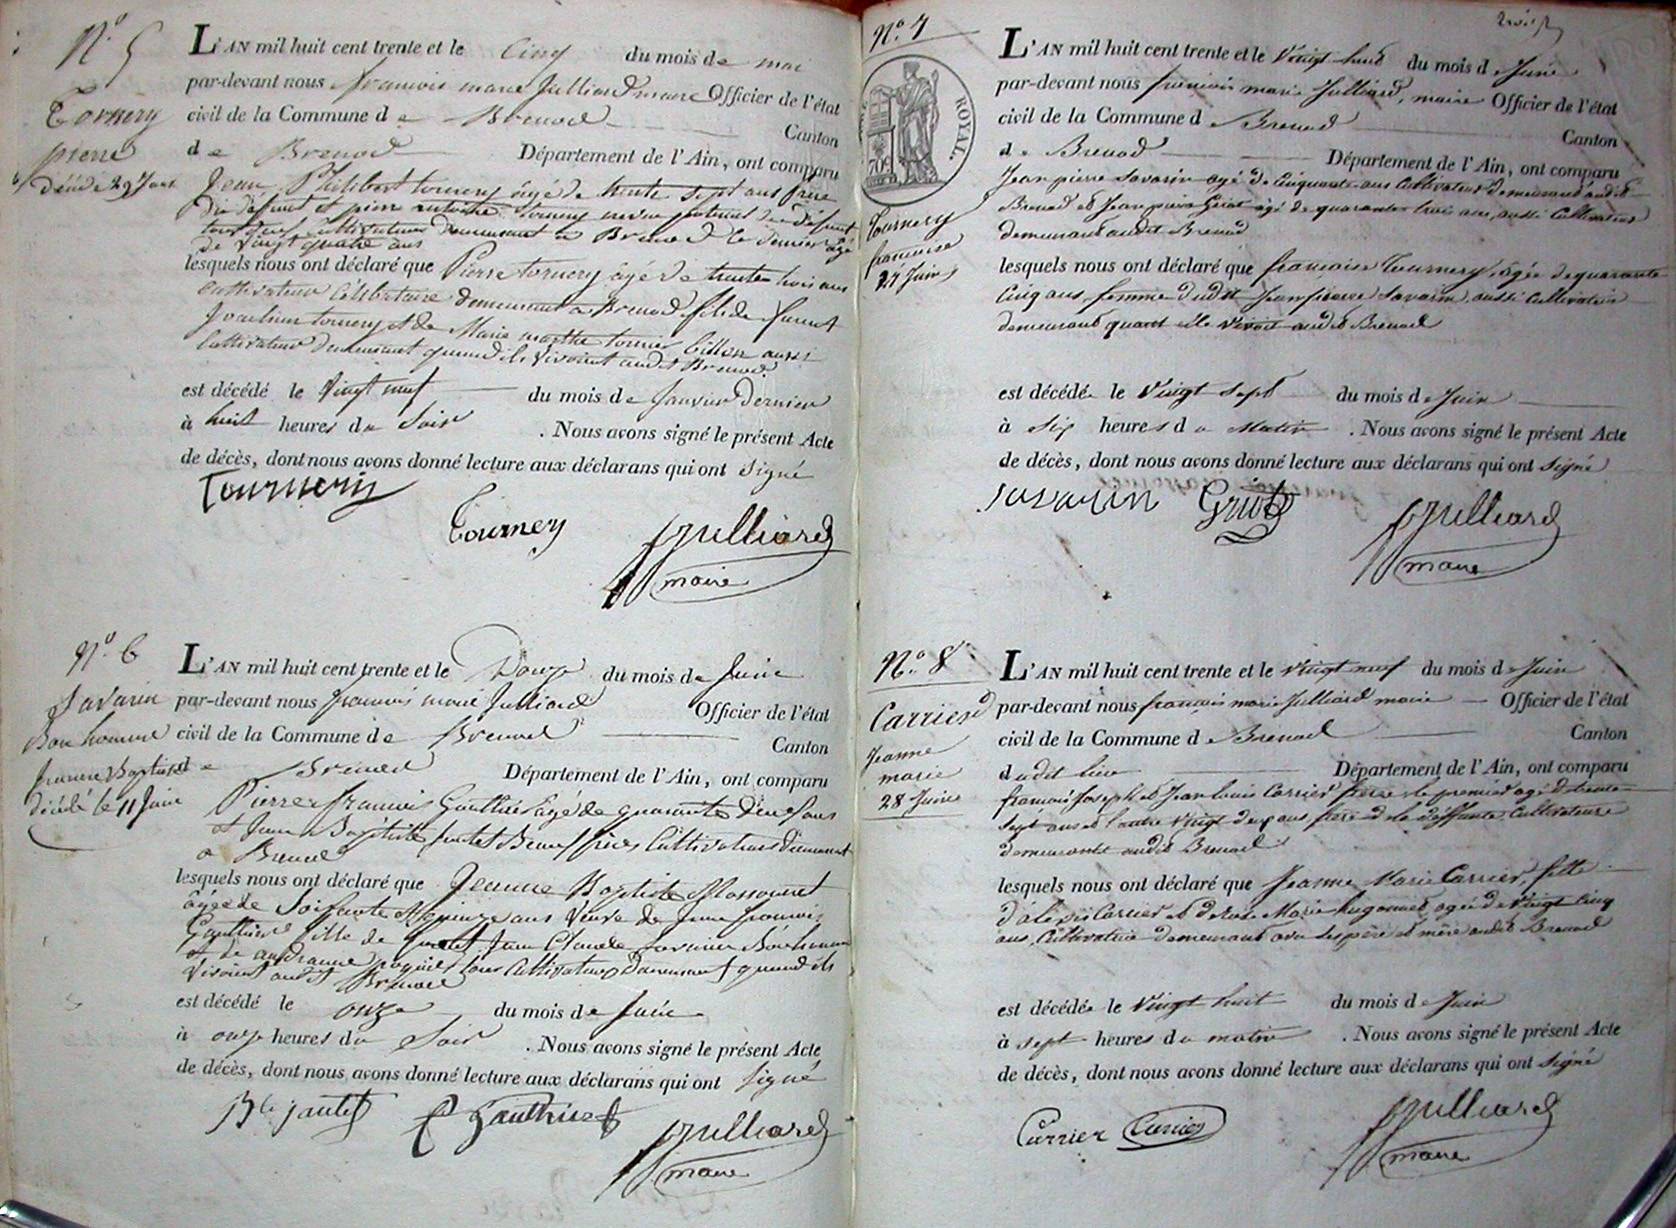 N.º 5
Tornery
pierre
décédé 29 Janv
L'AN mil huit cent trente et le Cinq du mois de mai
par-devant nous francois marie Julliard maire Officier de l'état
civil de la Commune de Brenod Canton
de Brenod Département de l'Ain, ont comparu
Jean Philibert tornery âgé de trente sept ans frère
du défunt et pierre antoine tornery neveu paternel du défunt
tous deux cultivateurs demeurant à Brenod le dernier âgé
de vingt quatre ans
lesquels nous ont déclaré que Pierre tornery âgé de trente trois ans
cultivateur célibataire demeurant a Brenod fils de furent
Joachim tornery et de Marie marthe tornier Billon aussi
Cultivateur demeurant quand ils vivoient audit Brenod.
est décédé le vingt neuf du mois de Janvier dernier
à huit heures du Soir . Nous avons signé le présent Acte
de décès, dont nous avons donné lecture aux déclarans qui ont signé
Tournery
Tourney
Julliard
maire
N.º 6
Savarin
Bonhomme
Jeanne Baptiste
décédé le 11 Juin
L'AN mil huit cent trente et le Douze du mois de Juin
par-devant nous francois marie Julliard Officier de l'état
civil de la Commune de Brenod Canton
de Brenod Département de l'Ain, ont comparu
Pierre francois Gauthier âgé de quarante deux ans
et Jean Baptiste Beaux frères Cultivateurs demeurant
a Brenod
lesquels nous ont déclaré que Jeanne Baptiste
âgée de Soixante et quinze ans Veuve de Jean francois
Gauthier fille de Jean Claude Savarin Bonhomme
et de tous Cultivateurs demeurant quand ils
vivoient audit Brenod
est décédé le onze du mois de Juin
à onze heures du Soir . Nous avons signé le présent Acte
de décès, dont nous avons donné lecture aux déclarans qui ont signé
Bte jantet P Gauthier
Julliard
maire
N.º 7
ROYAL.
709
Tournery
francoise
27 Juin
L'AN mil huit cent trente et le Vingt huit du mois de Juin
par-devant nous francois marie Julliard, maire Officier de l'état
civil de la Commune de Brenod Canton
de Brenod Département de l'Ain, ont comparu
Jean pierre Savarin agé de Cinquante ans Cultivateur demeurant audit
Brenod et Jean pierre Griot agé de quarante trois ans, aussi Cultivateur
demeurant audit Brenod
lesquels nous ont déclaré que francoise Tournery, agée de quarante
Cinq ans, femme dudit Jean pierre Savarin, aussi Cultivatrice
demeurant quant elle vivoit audit Brenod
est décédée le Vingt Sept du mois de Juin
à Six heures du Matin . Nous avons signé le présent Acte
de décès, dont nous avons donné lecture aux déclarans qui ont signé
savarin Griot
Julliard
maire
N.º 8
Carrier
Jeanne
marie
28 Juin
L'AN mil huit cent trente et le vingt neuf du mois de Juin
par-devant nous francois marie Julliard maire Officier de l'état
civil de la Commune de Brenod Canton
dudit lieu Département de l'Ain, ont comparu
francois Joseph et Jean Louis Carrier frère le premier agé de trente
Sept ans et l'autre Vingt deux ans, frère de la déffunte, Cultivateurs
demeurants audit Brenod
lesquels nous ont déclaré que Jeanne Marie Carrier, fille
d'alexis Carrier et de Rose Marie hugonnet agée de Vingt Cinq
ans, Cultivatrice demeurant avec ses père et mère audit Brenod
est décédée le Vingt huit du mois de Juin
à sept heures du matin . Nous avons signé le présent Acte
de décès, dont nous avons donné lecture aux déclarans qui ont Signé
Carrier Carrier
Julliard
maire